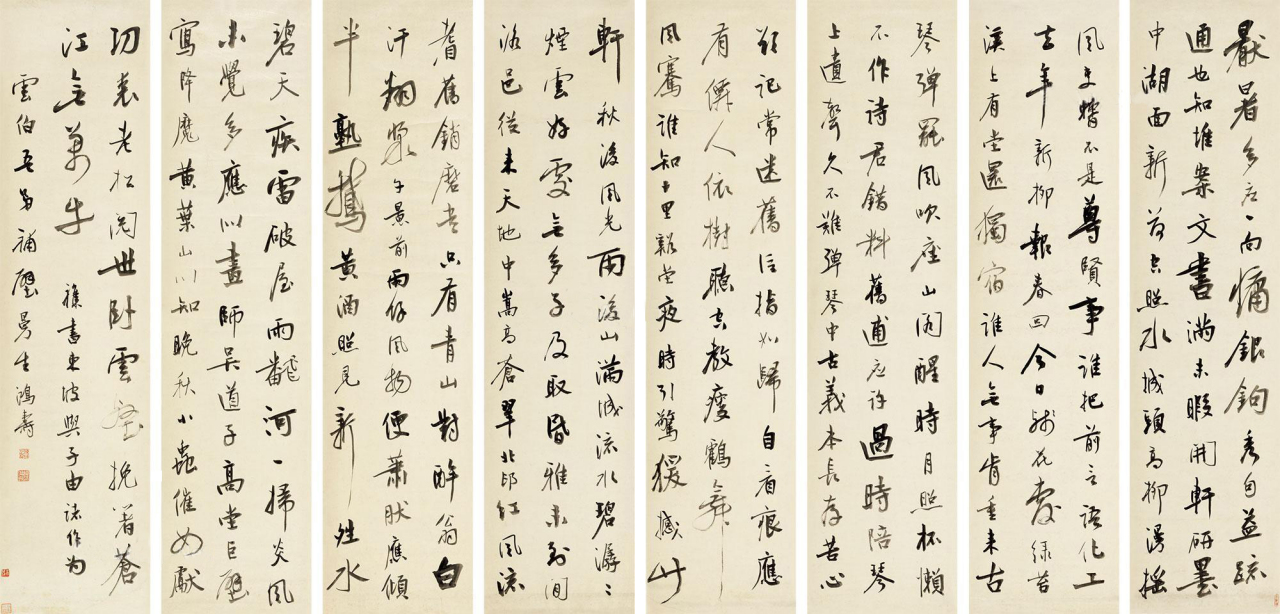 厭暑多应一向慵銀鉤秀句益疏
通也知堆案文書滿未暇開軒研墨
中湖面新荷空照水城頭高柳漫搖
風吏蟾不是尊賢事誰把前言語化工
去年新柳報春回今日殘花覆綠苔
溪上有堂還獨宿誰人無事肯重來古
琴彈罷風吹座山閣醒時月照杯懶
不作詩君錯料舊逋应許過時陪琴
上遺聲久不難彈琴中古義本長存苦心
欲記常迷舊信指如歸自看痕應
有僊人依樹聽空教瘦鶴舞
風騫誰知千里溪堂夜時引驚猨撼竹
軒秋後風光雨後山滿城流水碧潺〻
煙雲好處無多子及取昏雅未到間
洛邑從來天地中嵩高蒼翠北邙紅風流
耆舊銷磨盡只有青山對醉翁白
汗翻漿午景前雨餘風物便蕭然應傾
半熟鵝黃酒照見新晴水
碧天疾雷破屋雨翻河一掃炎風
未覺多應似畫師吳道子高堂巨壁
寫降魔黃葉山川知晚秋小蟲催女獻
功裘老松閱世卧雲壑挽著蒼
江無萬牛 書東坡與子由諸作為
雲伯吾弟補壁曼生鴻壽